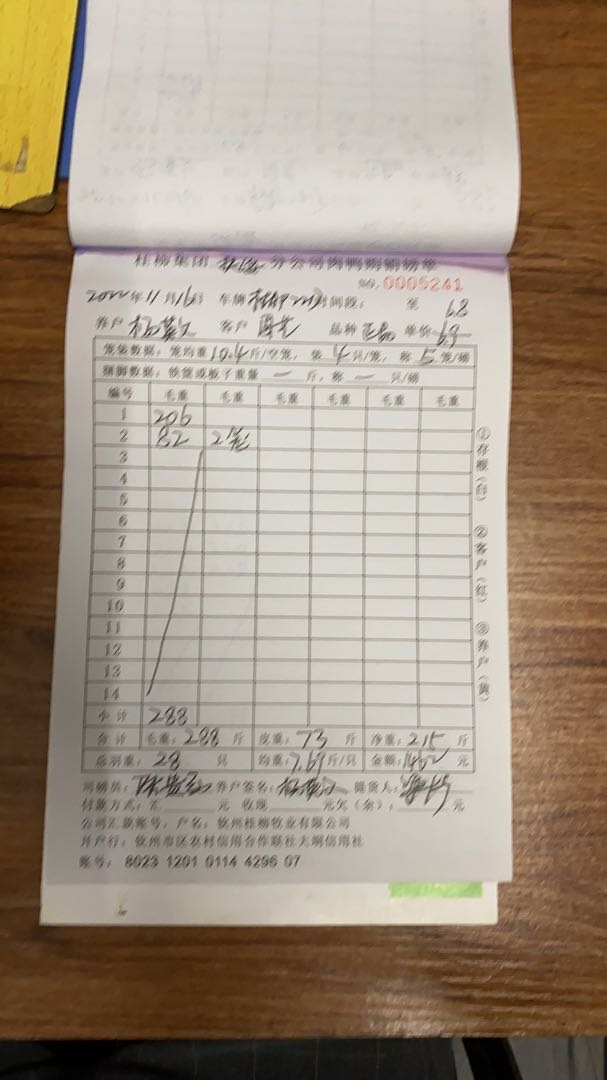 桂柳集团 分公司肉鸭购销磅单
NO. 0005241
2022年11月16日 车牌 时间段: 至 6.8
养户 杨 客户 品种 单价 6.9
笼装数据: 笼均重 10.4 斤/空笼, 装 4 只/笼, 称 5 笼/磅
捆脚数据: 铁篮或板子重量 — 斤, 称 — 只/磅
编号 毛重 毛重 毛重 毛重 毛重 毛重
1 206
2 82 2笼
3
4
5
6
7
8
9
10
11
12
13
14
小计 288
合计 毛重: 288 斤 皮重: 73 斤 净重: 215 斤
总羽重: 28 只 均重: 7.69 斤/只 金额: 1462 元
司磅员: 陈 养户签名: 杨 提货人:
付款方式: 汇 元 收现 元欠(余): 元
公司汇款账号, 户名: 钦州桂柳牧业有限公司
开户行: 钦州市区农村信用合作联社大垌信用社
账号: 8023 1201 0114 4296 07
①存根(白) ②客户(红) ③养户(黄)